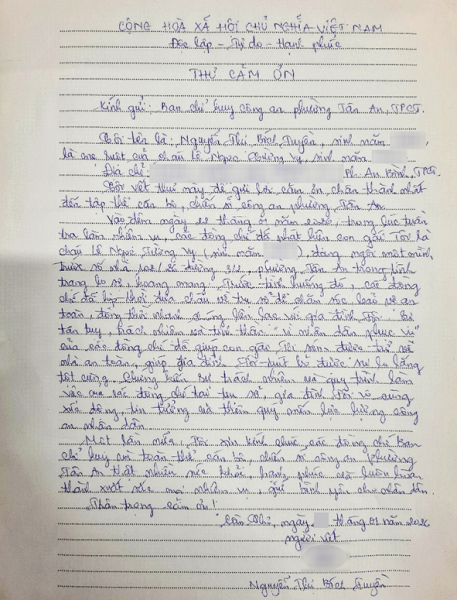 CỘNG HOÀ XÃ HỘI CHỦ NGHĨA VIỆT NAM
Độc lập - Tự do - Hạnh phúc
THƯ CẢM ƠN
Kính gửi: Ban chỉ huy công an phường Tân An, TPCT.
Tôi tên là: Nguyễn Thị Bích Tuyền, sinh năm
là mẹ ruột của cháu Lê Ngọc Tường Vy, sinh năm
Địa chỉ: Ph. An Bình, TPCT.
Tôi viết thư này để gửi lời cảm ơn chân thành nhất
đến tập thể cán bộ, chiến sĩ công an phường Tân An.
Vào đêm ngày tháng 01 năm 2026, trong lúc tuần
tra làm nhiệm vụ, các đồng chí đã phát hiện con gái Tôi là
cháu Lê Ngọc Tường Vy (sinh năm ), đang ngồi một mình
trước số nhà đường 3/2, phường Tân An trong tình
trạng lo sợ, hoang mang. Trước tình huống đó, các đồng
chí đã kịp thời đưa cháu về trụ sở để chăm sóc, bảo vệ an
toàn, đồng thời nhanh chóng liên lạc với gia đình Tôi. Sự
tận tuỵ, trách nhiệm và tinh thần "vì nhân dân phục vụ"
của các đồng chí đã giúp con gái Tôi sớm được trở về
nhà an toàn, giúp gia đình Tôi trút bỏ được sự lo lắng
tột cùng. Chứng kiến sự trách nhiệm và quy trình làm
việc của các đồng chí tại trụ sở, gia đình Tôi vô cùng
xúc động, tin tưởng và thêm quý mến lực lượng công
an nhân dân.
Một lần nữa, Tôi xin kính chúc các đồng chí Ban
chỉ huy và toàn thể cán bộ, chiến sĩ công an phường
Tân An thật nhiều sức khoẻ, hạnh phúc và luôn hoàn
thành xuất sắc mọi nhiệm vụ, giữ bình yên cho nhân dân.
Trân trọng cảm ơn!
Cần Thơ, ngày tháng 01 năm 2026
người viết
Nguyễn Thị Bích Tuyền